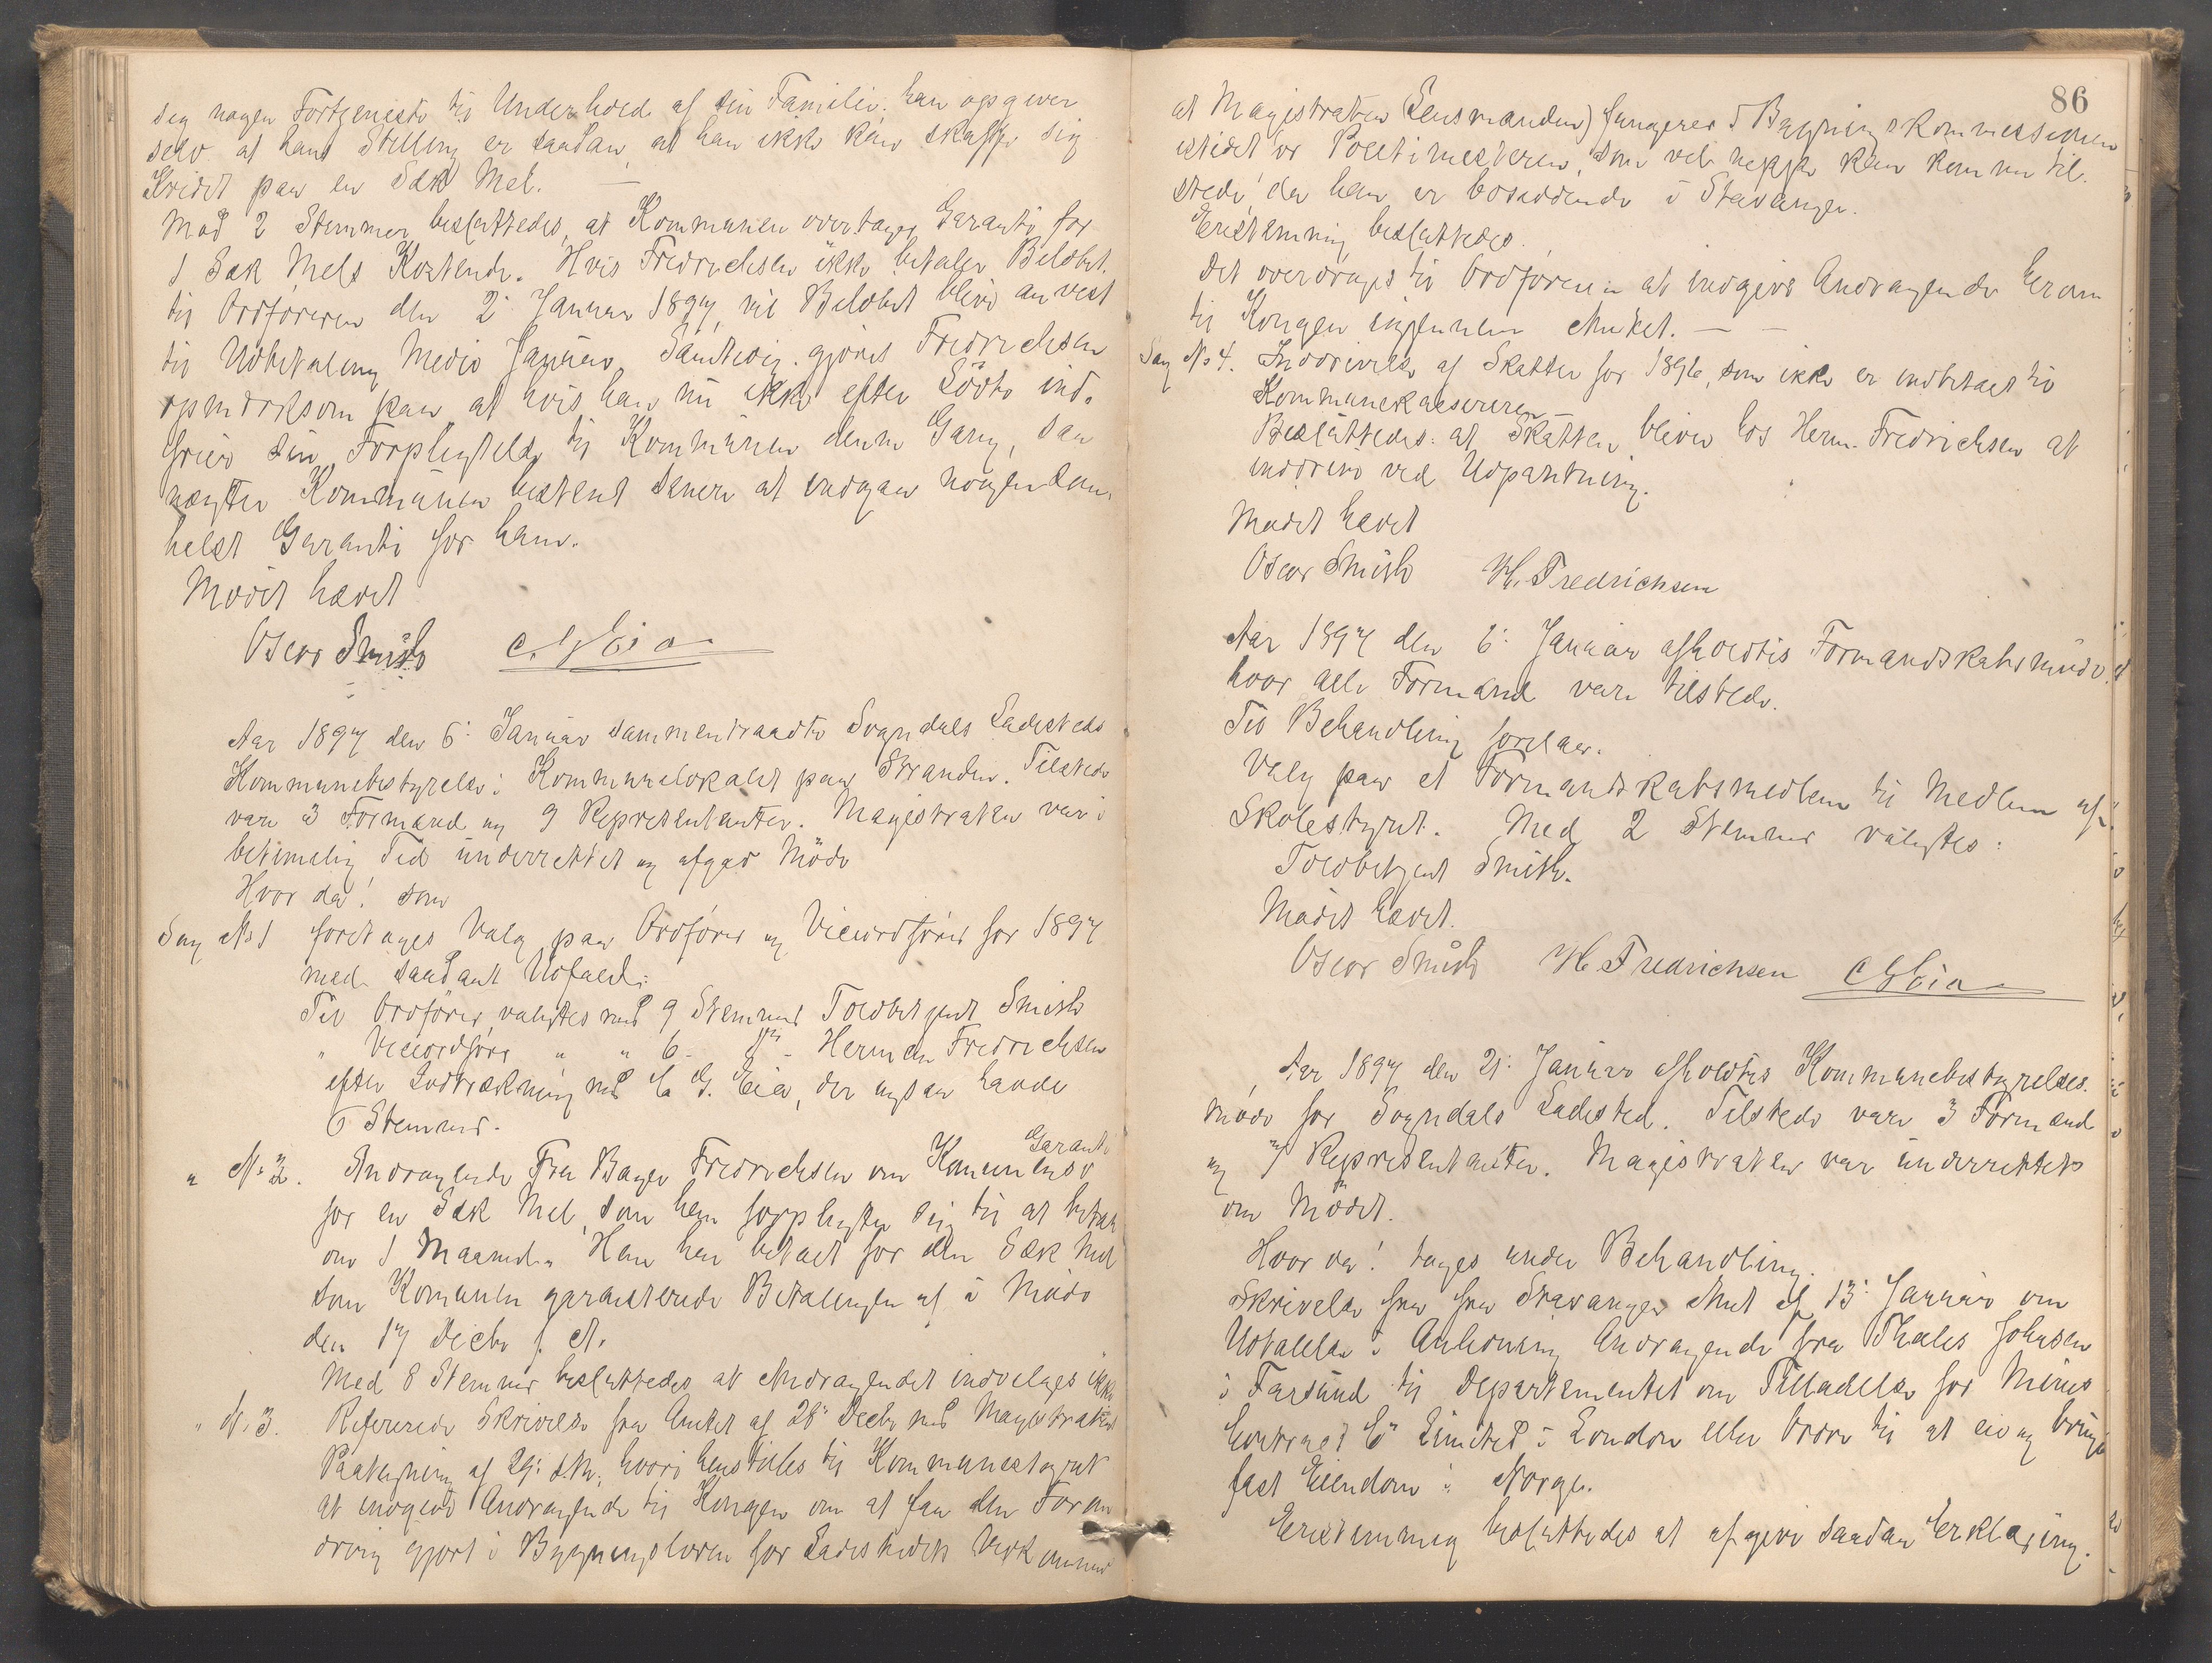 sig nogen Fortjeneste til Underhold af sin Familie. han opgiver
selv at hans Stilling er saadan, at han ikke kan skaffe sig
Kridit paa en Sæk Mel. —
Mod 2 Stemmer besluttedes, at Kommunen overtager Garanti for
1 Sæk Mels Kostende. Hvis Fredrichsen ikke betaler Belöbet
til Ordföreren den 2: Januar 1897, vil Belöbet blive anvist
til Udbetaling Medio Januar, Samtidig gjöres Fredrichsen
opmerksom paa, at hvis han nu ikke efter Löfte ind-
frier sin Forpligtelse til Kommunen denne Gang, saa
nægter Kommunen bestemt senere at indgaa nogensom-
helst Garanti for ham.
Mödet hævet
Oscar Smith C. G. Eia
Aar 1897 den 6: Januar sammentraadte Sogndals Ladesteds
Kommunebestyrelse i Kommunelokalet paa Stranden. Tilstede
vare 3 Formænd og 9 Representanter. Magistraten var i
betimelig Tid underrettet og afgav Möde
Hvor da! som
Sag No 1 foretages Valg paa Ordförer og Viceordförer for 1897
med saadant Udfald:
Til Ordförer valgtes med 9 Stemmer Toldbetjent Smith
" Viceordförer " " 6 - Herman Fredrichsen
efter Lodtrækning med C. G. Eia, der ogsaa havde
6 Stemmer.
" No 2. Andragende fra Bager Fredrichsen om Komunens Garanti
for en Sæk Mel, som han forpligter sig til at betale
om 1 Maaned. Han har betalt for den Sæk Mel
som Komunen garanterede Betalingen af i Möde
den 17 Decbr f. A.
Med 8 Stemmer besluttedes at Andragendet indvilges ikke
" N. 3. Refererede Skrivelse fra Amtet af 28: Decbr med Magistratens
Paategning af 29: s.M., hvori henstilles til Kommunestyret
at indgive Andragende til Kongen om at faa den Foran-
dring gjort i Bygningsloven for Ladestedets Vedkommende
86
at Magistraten (Lensmanden) fungerer i Bygningskommissionen
istedet for Politimesteren, som vel neppe kan komme til-
stede, da han er bosiddende i Stavanger.
Enstemmig besluttedes.
Det overdrages til Ordföreren at indgive Andragende herom
til Kongen igjennem Amtet. — —
Sag No 4. Inddrivelse af Skatter for 1896, som ikke er indbetalt til
Kommunekassereren —
Besluttedes: at Skatten bliver hos Herm. Fredrichsen at
inddrive ved Udpantning.
Mödet hævet
Oscar Smith H. Fredrichsen
Aar 1897 den 6: Januar afholdtes Formandskabsmöde
hvor alle Formænd vare tilstede.
Til Behandling forelaa.
Valg paa et Formandskabsmedlem til Medlem af
Skolestyret. Med 2 Stemmer valgtes:
Toldbetjent Smith.
Mödet hævet.
Oscar Smith H. Fredrichsen C G Eia
Aar 1897 den 21: Januar afholdtes Kommunebestyrelses-
möde for Sogndals Ladested. Tilstede vare 3 Formænd
og 7 Representanter. Magistraten var underrettet
om Mödet.
Hvor da! tages under Behandling.
Skrivelse fra fra Stavanger Amt af 13: Januar om
Udtalelse i Anledning Andragende fra Thales Johnsen
i Farsund til Departementet om Tilladelse for Mines
Contract Co Limited i London eller Ordre til at eie og bruge
fast Eiendom i Norge.
Enstemmig besluttedes at afgive saadan Erklæring.